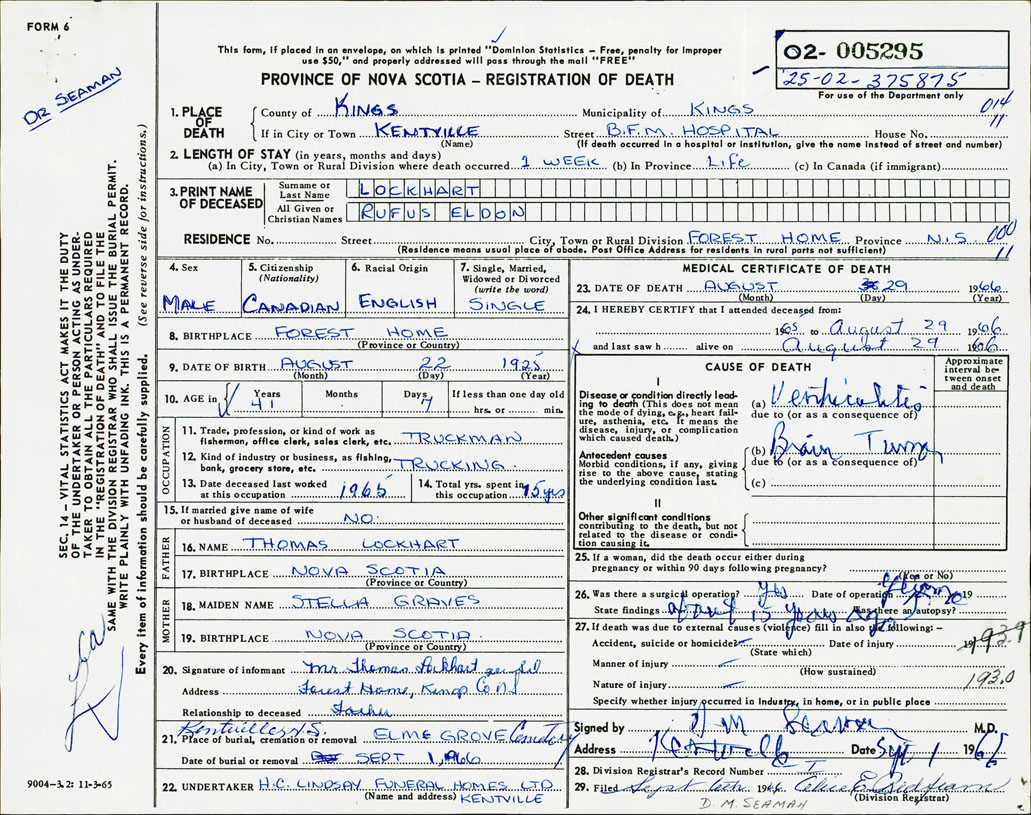 FORM 6
DR SEAMAN
This form, if placed in an envelope, on which is printed "Dominion Statistics – Free, penalty for improper
use $50," and properly addressed will pass through the mail "FREE"
PROVINCE OF NOVA SCOTIA – REGISTRATION OF DEATH
02- 005295
25-02-375875
For use of the Department only
1. PLACE OF DEATH
County of KINGS Municipality of KINGS 014
If in City or Town KENTVILLE Street B.F.M. HOSPITAL House No. 11
(Name) (If death occurred in a hospital or institution, give the name instead of street and number)
2. LENGTH OF STAY (in years, months and days)
(a) In City, Town or Rural Division where death occurred 1 WEEK (b) In Province Life (c) In Canada (if immigrant)
3. PRINT NAME OF DECEASED
Surname or Last Name LOCKHART
All Given or Christian Names RUFUS ELDON
RESIDENCE No. Street City, Town or Rural Division FOREST HOME Province N.S. 000
(Residence means usual place of abode. Post Office Address for residents in rural parts not sufficient) 11
4. Sex MALE
5. Citizenship (Nationality) CANADIAN
6. Racial Origin ENGLISH
7. Single, Married, Widowed or Divorced (write the word) SINGLE
8. BIRTHPLACE FOREST HOME
(Province or Country)
9. DATE OF BIRTH AUGUST 22 1925
(Month) (Day) (Year)
10. AGE in Years 41 Months Days 7 If less than one day old
hrs. or min.
OCCUPATION
11. Trade, profession, or kind of work as
fisherman, office clerk, sales clerk, etc. TRUCKMAN
12. Kind of industry or business, as fishing,
bank, grocery store, etc. TRUCKING.
13. Date deceased last worked
at this occupation 1965
14. Total yrs. spent in
this occupation 15 yrs
15. If married give name of wife
or husband of deceased NO.
FATHER
16. NAME THOMAS LOCKHART
17. BIRTHPLACE NOVA SCOTIA
(Province or Country)
MOTHER
18. MAIDEN NAME STELLA GRAVES
19. BIRTHPLACE NOVA SCOTIA.
(Province or Country)
20. Signature of informant Mr. Thomas Lockhart
Address Forest Home, Kings Co N.S
Relationship to deceased Father
Kentville N.S.
21. Place of burial, cremation or removal ELME GROVE Cemetery
Date of burial or removal SEPT 1, 1966
22. UNDERTAKER H.C. LINDSAY FUNERAL HOMES LTD
(Name and address) KENTVILLE
MEDICAL CERTIFICATE OF DEATH
23. DATE OF DEATH AUGUST 29 1966
(Month) (Day) (Year)
24. I HEREBY CERTIFY that I attended deceased from:
1965 to August 29 1966
and last saw h alive on August 29 1966
CAUSE OF DEATH
Approximate interval between onset and death
I
Disease or condition directly leading to death (This does not mean
the mode of dying, e.g., heart failure, asthenia, etc. It means the
disease, injury, or complication
which caused death.)
(a) Ventriculitis
due to (or as a consequence of)
Antecedent causes
Morbid conditions, if any, giving
rise to the above cause, stating
the underlying condition last.
(b) Brain Tumor
due to (or as a consequence of)
(c)
II
Other significant conditions
contributing to the death, but not
related to the disease or condition causing it.
25. If a woman, did the death occur either during
pregnancy or within 90 days following pregnancy?
(Yes or No)
26. Was there a surgical operation? Yes Date of operation 19
State findings about 15 years ago Was there an autopsy? no
27. If death was due to external causes (violence) fill in also the following: –
Accident, suicide or homicide? Date of injury 19 193.9
(State which)
Manner of injury
(How sustained)
Nature of injury 193.0
Specify whether injury occurred in industry, in home, or in public place
Signed by D M Seaman M.D.
Address Kentville Date Sept 1 1966
28. Division Registrar's Record Number
29. Filed Sept 1966
(Division Registrar)
D. M. SEAMAN
SEC. 14 – VITAL STATISTICS ACT MAKES IT THE DUTY
OF THE UNDERTAKER OR PERSON ACTING AS UNDER-
TAKER TO OBTAIN ALL THE PARTICULARS REQUIRED
IN THE "REGISTRATION OF DEATH" AND TO FILE THE
SAME WITH THE DIVISION REGISTRAR WHO SHALL ISSUE THE BURIAL PERMIT.
WRITE PLAINLY WITH UNFADING INK. THIS IS A PERMANENT RECORD.
Every item of information should be carefully supplied. (See reverse side for instructions.)
9004–3.2: 11-3-65